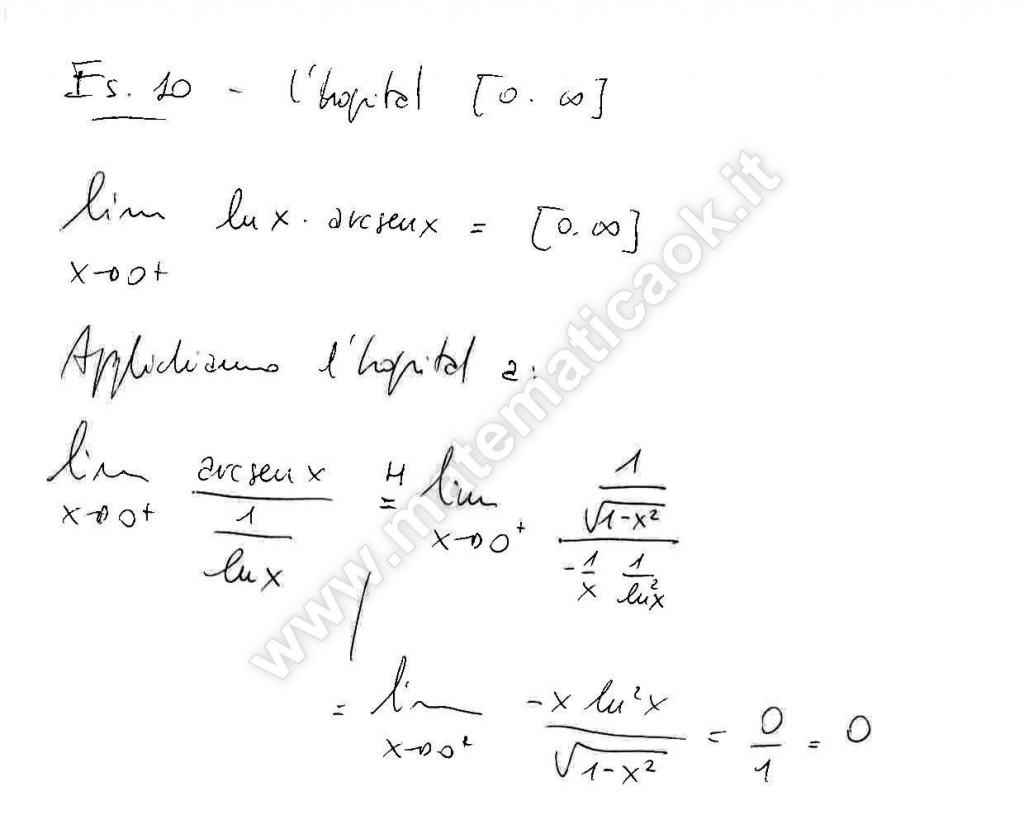 Es. 10 - l'hopital [0. ∞]
lim ln x · arcsen x = [0. ∞]
x→0+
Applichiamo l'hopital a:
lim_{x→0+} (arcsen x)/(1/(ln x)) =^H lim_{x→0+} (1/√(1-x²))/(-1/x 1/(ln²x))
= lim_{x→0+} (-x ln²x)/√(1-x²) = 0/1 = 0
www.matematicaok.it